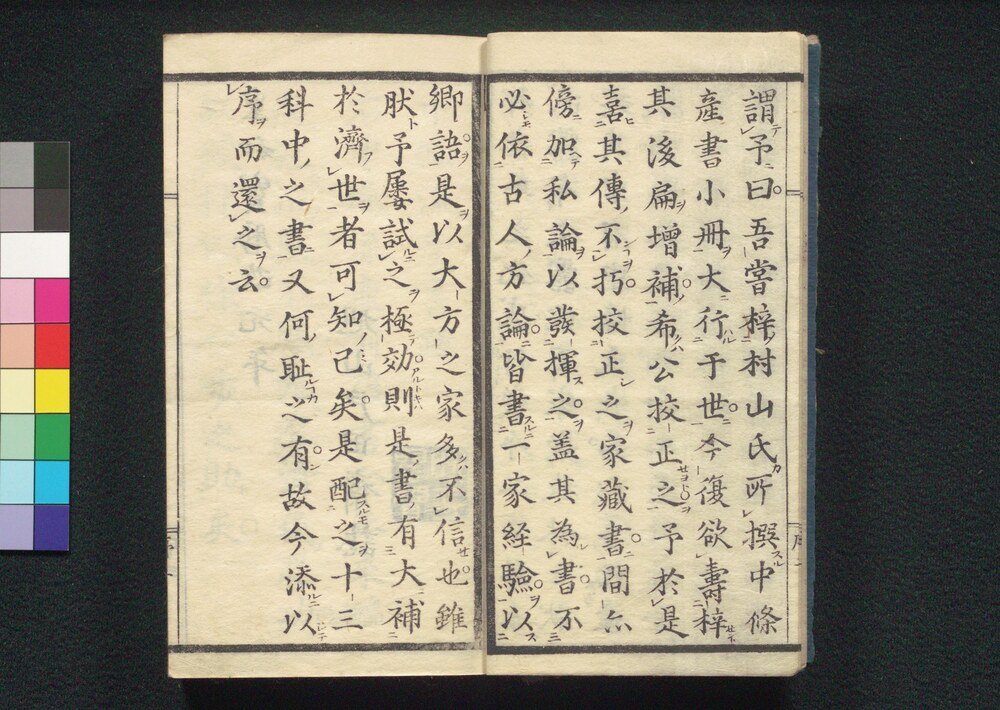 謂予曰吾嘗梓村山氏所撰中條
產書小冊大行于世今復欲壽梓
其後扁增補希公挍正之予於是
喜其傳不朽挍正之家藏書間亦
傍加私論以發揮之盖其為書不
必依古人方論皆書一家経驗以
卿語是以大方之家多不信也雖
肰予屢試之極効則是書有大補
於濟世者可知已矣是配之十三
科中之書又何耻之有故今添以
序而還之云